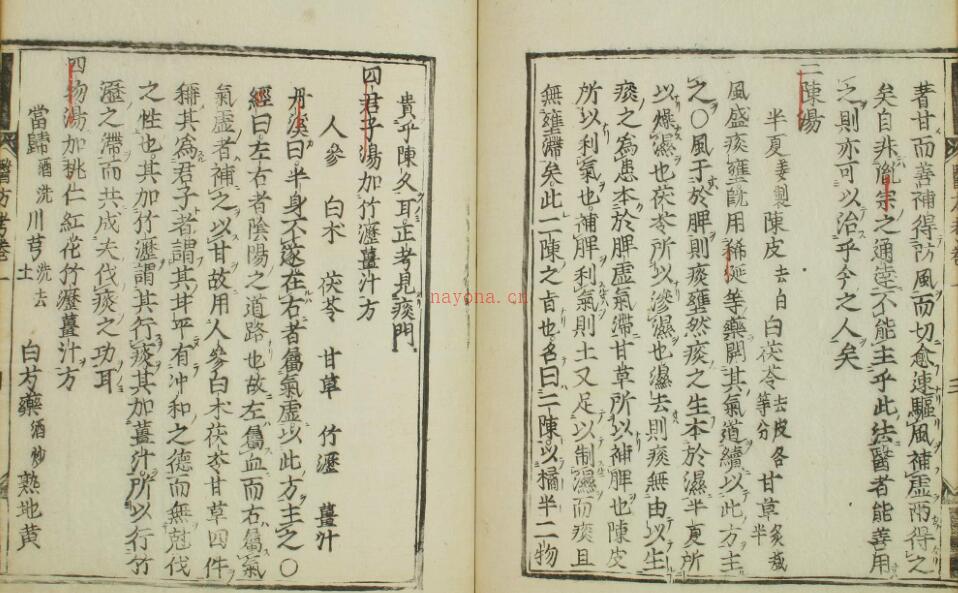 著甘而善補得防風而功愈速驅風補虛兩得之
矣自非胤宗之通達不能主乎此法醫者能善用
之則亦可以治乎今之人矣
二陳湯
半夏姜製陳皮去白白茯苓去皮各等分甘草炙减半
風盛痰壅既用稀涎等藥開其氣道續以此方主
之○風干於脾則痰壅然痰之生本於濕半夏所
以燥濕也茯苓所以滲濕也濕去則痰無由以生
痰之為患本於脾虛氣滯甘草所以補脾也陳皮
所以利氣也補脾利氣則土又足以制濕而痰且
無壅滯矣此二陳之旨也名曰二陳以橘半二物
貴乎陳久耳正考見痰門
四君子湯加竹瀝薑汁方
人參 白朮 茯苓 甘草 竹瀝 薑汁
丹溪曰半身不遂在右者屬氣虛以此方主之○
經曰左右者陰陽之道路也故左屬血而右屬氣
氣虛者補之以甘故用人參白朮茯苓甘草四件
稱其為君子者謂其甘平有沖和之德而無尅伐
之性也其加竹瀝謂其行痰其加薑汁所以行竹
瀝之滯而共成夫伐痰之功耳
四物湯加桃仁紅花竹瀝薑汁方
當歸酒洗川芎洗去土 白芍藥酒炒熟地黃
醫方考卷一
nayona.cn